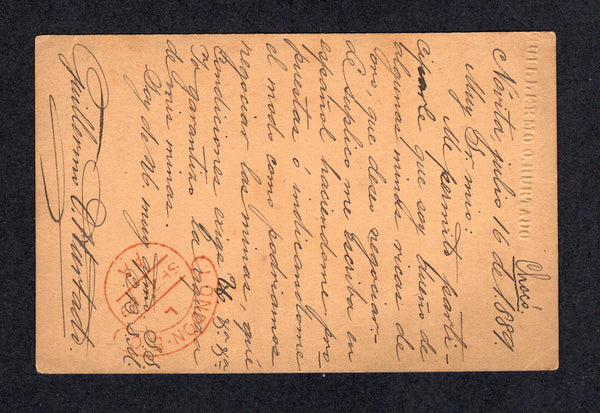 GUILLERMO O. HURTADO
Chocó
Nóvita, julio 16 de 1889
Muy Sr. mio:
Me permito parti-
ciparle que soy dueño de
algunas minas ricas de
oro, que deseo negociar.-
Le suplico me escriba en
español haciendome pro-
puestas ó indicandome
el modo como podriamos
negociar las minas, qué
condiciones exige Ud. &ª &ª
Yo garantizo la riqueza
de mis minas.
Soy de Ud. muy atmo. S.S.
Q. B. S. M.
Guillermo O. Hurtado
LONDON
PAID
SP
7